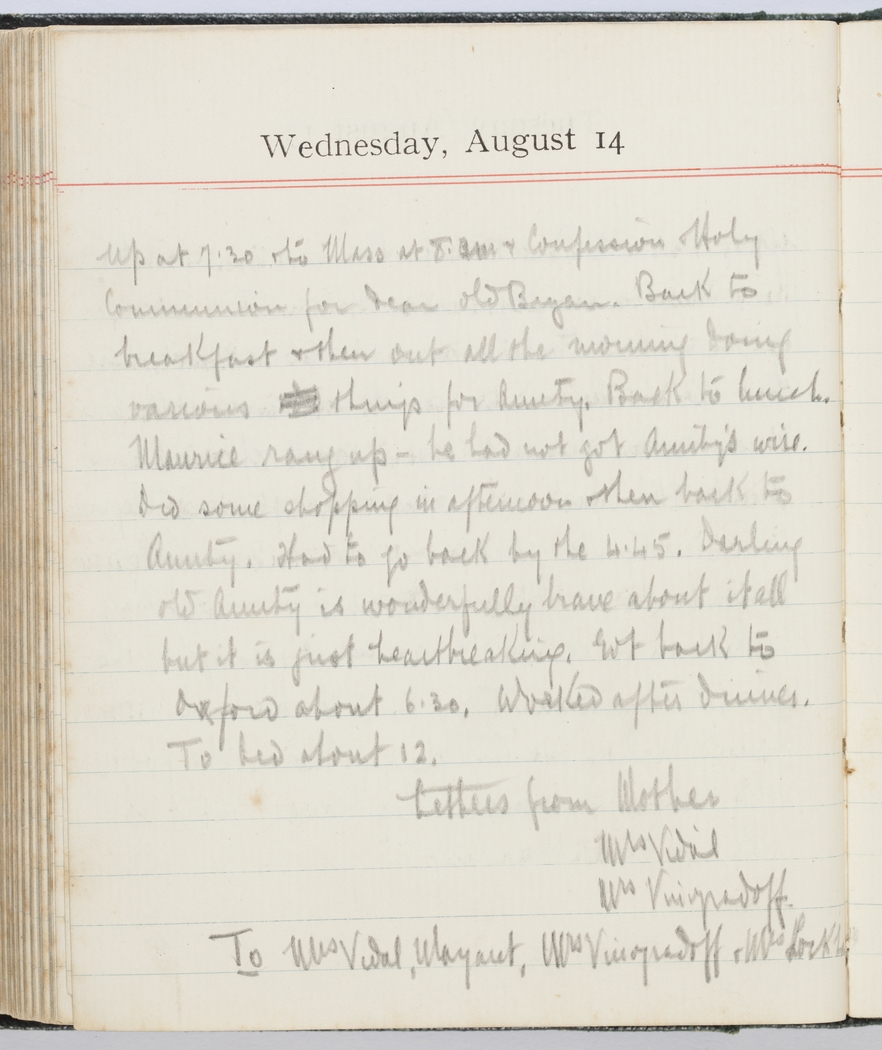 Wednesday, August 14
Up at 7.30 & to Mass at 8. am & Confession & Holy
Communion for dear old Bryan. Back to
breakfast & then out all the morning doing
various things for Aunty. Back to lunch.
Maurice rang up – he had not got Aunty's wire.
Did some shopping in afternoon & then back to
Aunty. Had to go back by the 4.45. Darling
old Aunty is wonderfully brave about it all
but it is just heartbreaking. Got back to
Oxford about 6.30. Worked after dinner.
To bed about 12.
Letters from Mother
Mrs Vidal
Mrs Vinogradoff.
To Mrs Vidal, Margaret, Mrs Vinogradoff & Mrs